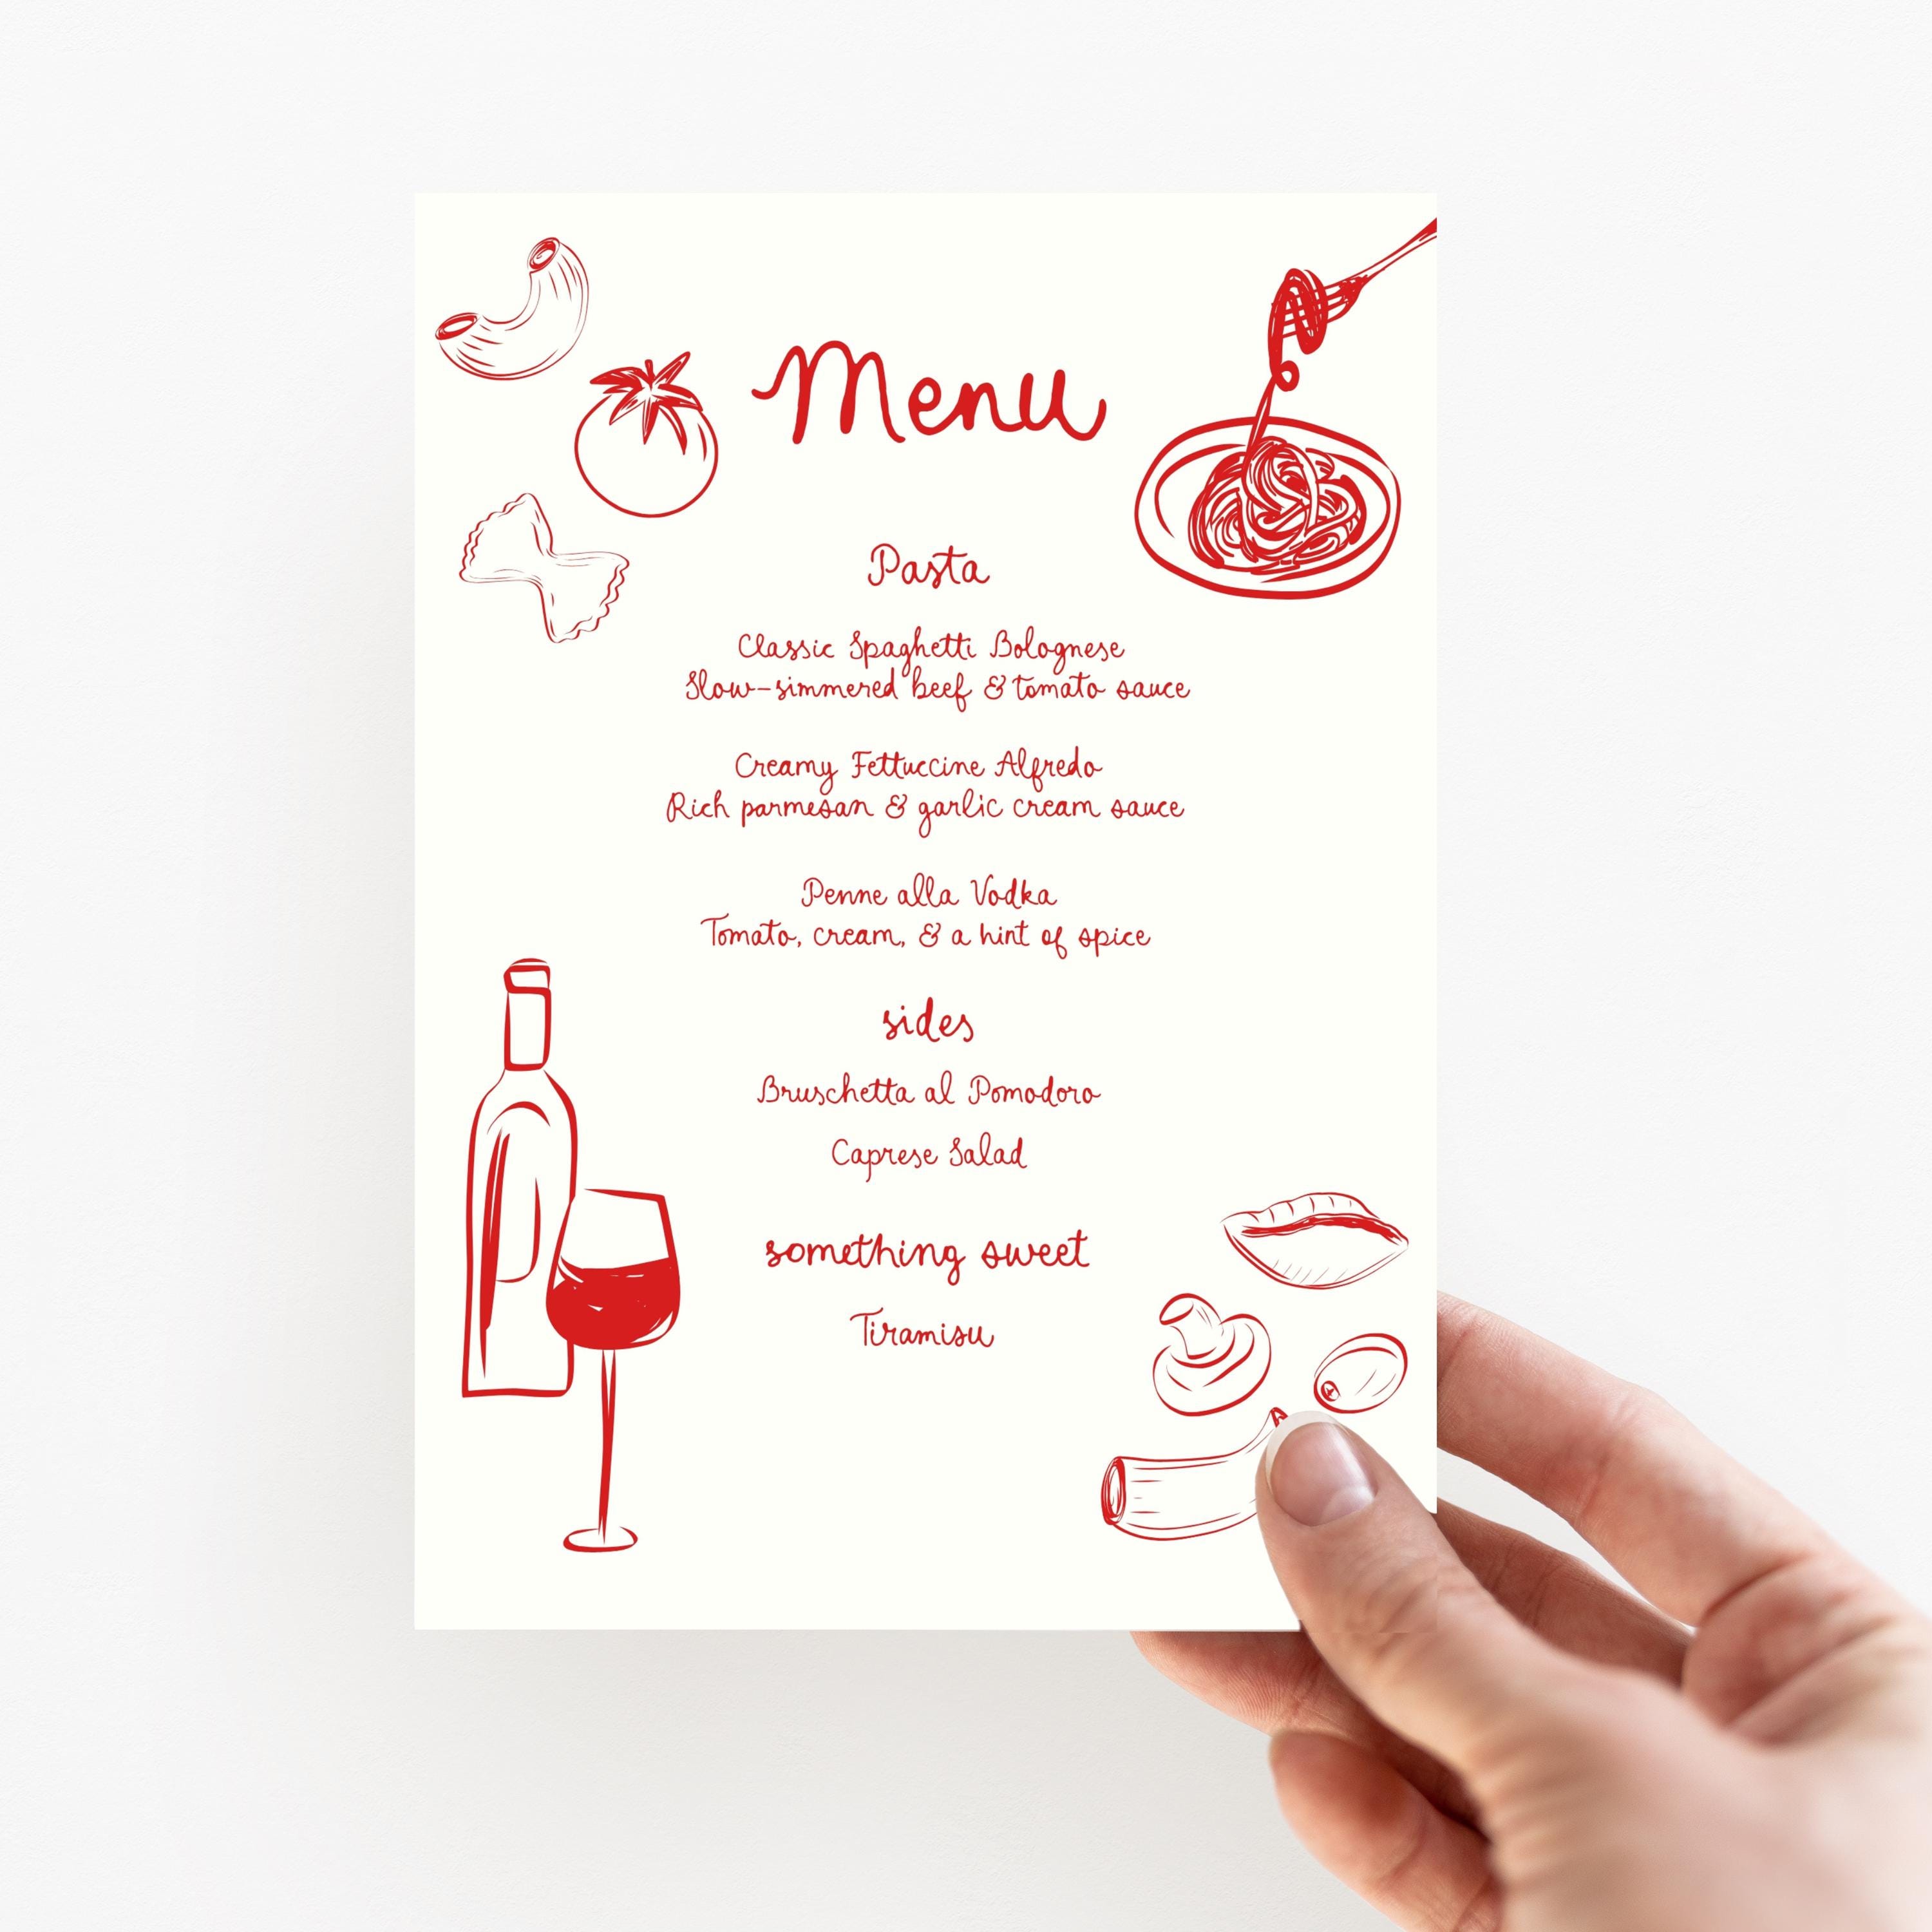 Menu
Pasta
Classic Spaghetti Bolognese
Slow-simmered beef & tomato sauce
Creamy Fettuccine Alfredo
Rich parmesan & garlic cream sauce
Penne alla Vodka
Tomato, cream, & a hint of spice
sides
Bruschetta al Pomodoro
Caprese Salad
something sweet
Tiramisu